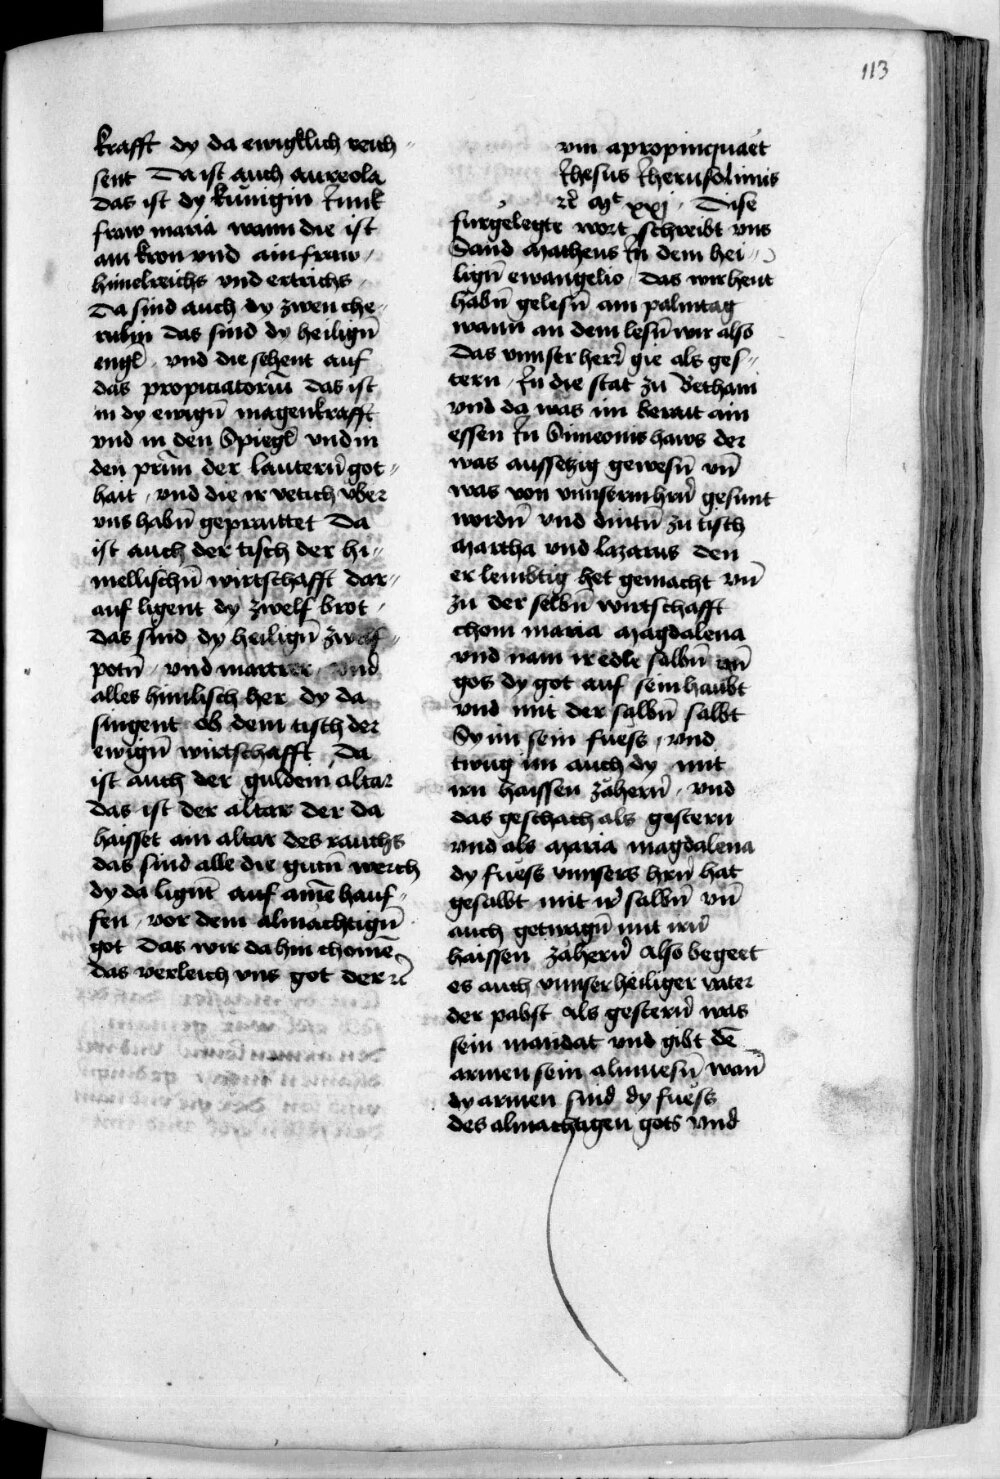 113
krafft dy da ewigklich reich〃
sent Da ist auch aureola
das ist dy kůnigin Junk
fraw maria wann die ist
ain kron vnd ain fraw
himelreichs vnd ertrichs
Da sind auch dy zwen che〃
rubin das sind dy heiligñ
engl̄ vnd die sehent auf
das propiciatoriū das ist
in dy ewigñ magenkrafft
vnd in den Spiegl̄ vnd in
den der lauterñ got〃
hait vnd die ir vetich vber
vns habñ geprauttet Da
ist auch der tisch der hi〃
mellischñ wirtschafft dar〃
auf ligent dy zwelf brot
das sind dy heiligñ zwelf〃
potñ vnd martrer vnd
alles himlisch her dy da
singent ob dem tisch der
ewigñ wirtschafft Da
ist auch der guldein altar
das ist der altar der da
haisset ain altar des rauchs
das sind alle die gutñ werch
dy da lignt auf ainē hauf〃
fen vor dem almachtigñ
got Das wir da hin chomē
das verleich vns got der rc̄
vm apropinquaet
Jhesus Jherusolimis
rc̄ mt xxj Dise
furgelegte wort schreibt vns
Sand Matheus Jn dem hei〃
ligñ ewangelio das wir heut
habñ gelesñ am palmtag
wann an dem lesñ wir also
das vnnser herr̄ gie als ges〃
tern Jn die stat zu Bethani
vnd da was im berait ain
essen Jn Simeonis haws der
was aussetzig gewesñ vñ
was von vnnserm hrñ gesunt
wordñ vnd dintñ zu tisch
Martha vnd lazarus den
er lembtig het gemacht vñ
zu der selbñ wirtschafft
chom maria Magdalena
vnd nam ir edle salbñ vñ
gos dy got auf sein haubt
vnd mit der salbñ salbt
Sy im sein fuess vnd
twug im auch dy mit
irn haissen zähern̄ vnd
das geschach als gestern
vnd als Maria magdalena
dy fuess vnnsers hrñ hat
gesalbt mit ir̄ salbñ vñ
auch getwagñ mit irñ
haissen zähern̄ Also begeet
es auch vnnser heiliger vater
der pabst Als gestern̄ was
sein mandat vnd gibt dē
armen sein almuesñ wañ
dy armen sind dy fuess
des almachtigen gots vnd